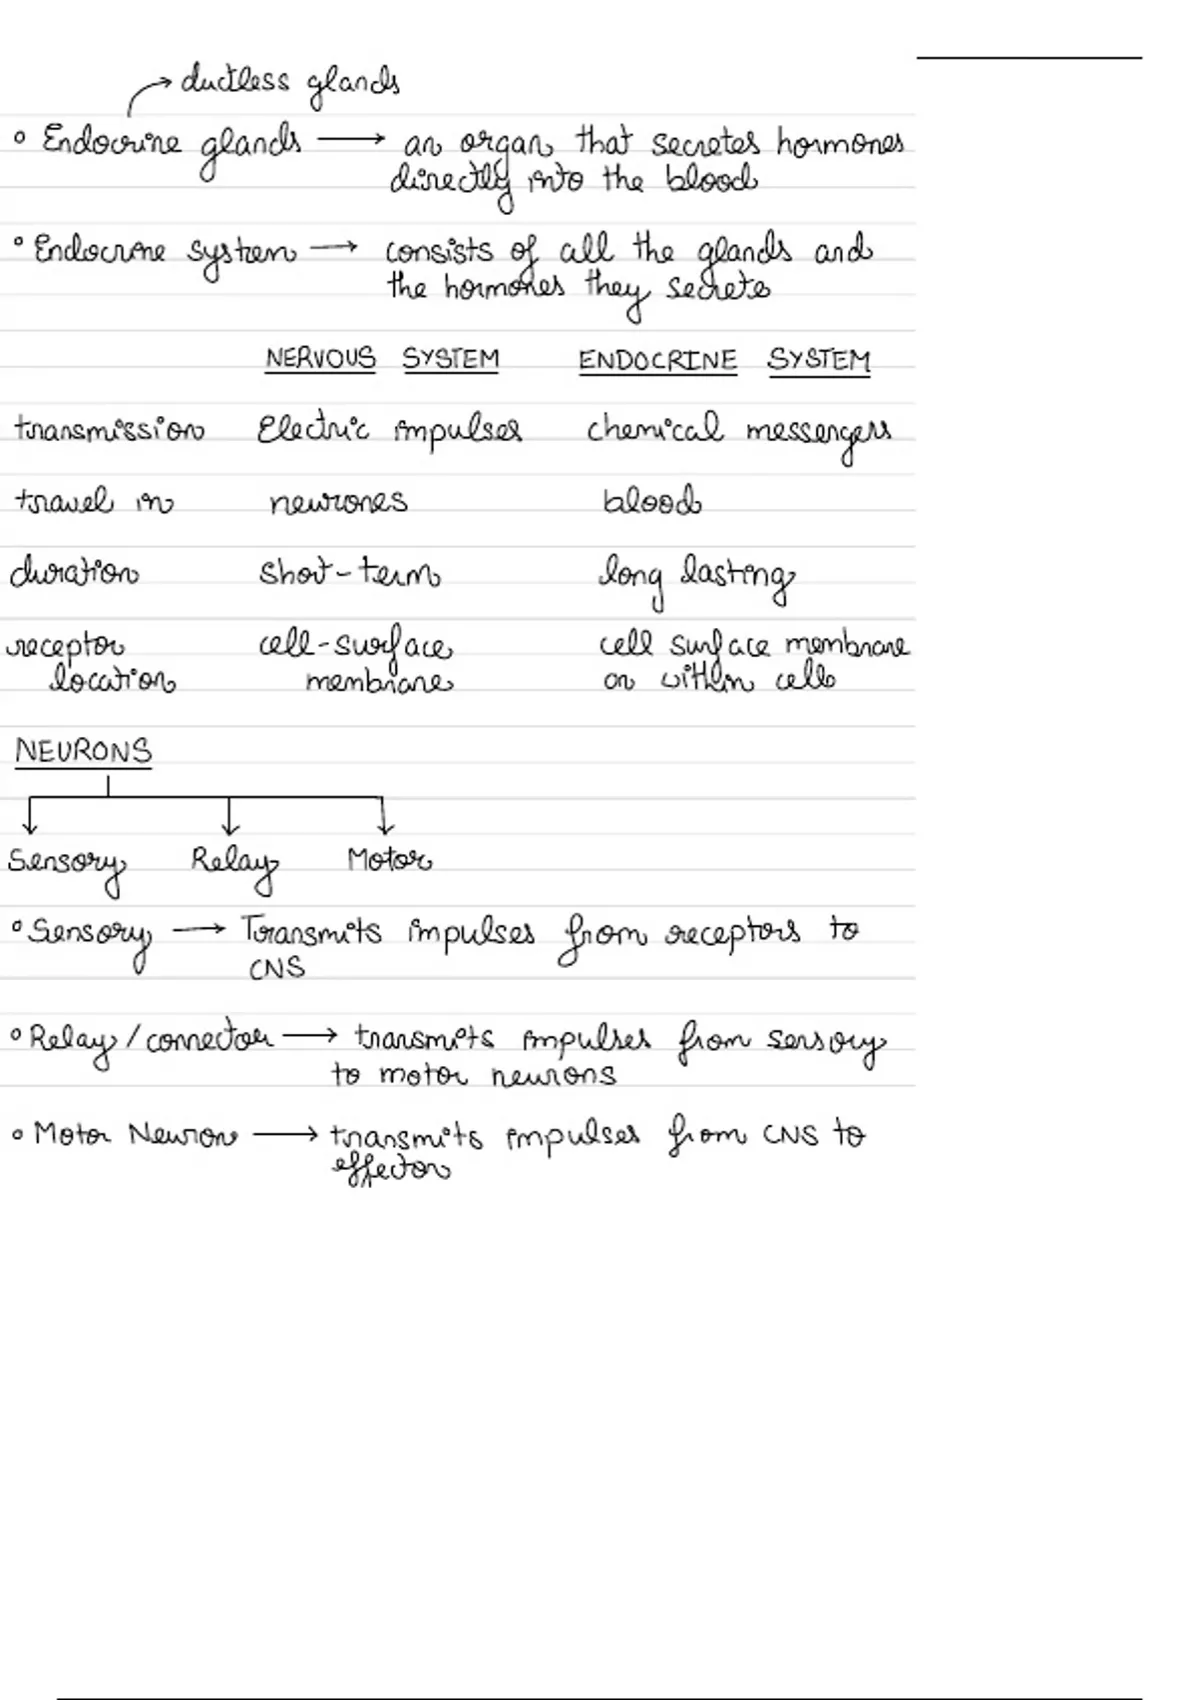 ductless glands
° Endocrine glands → an organ that secretes hormones
directly into the blood
° Endocrine system → consists of all the glands and
the hormones they secrete
NERVOUS SYSTEM ENDOCRINE SYSTEM
transmission Electric impulses chemical messengers
travel in neurones blood
duration short-term long lasting
receptor cell-surface cell surface membrane
location membrane or within cells
NEURONS
Sensory Relay Motor
° Sensory → Transmits impulses from receptors to
CNS
° Relay / connector → transmits impulses from sensory
to motor neurons
° Motor Neuron → transmits impulses from CNS to
effector